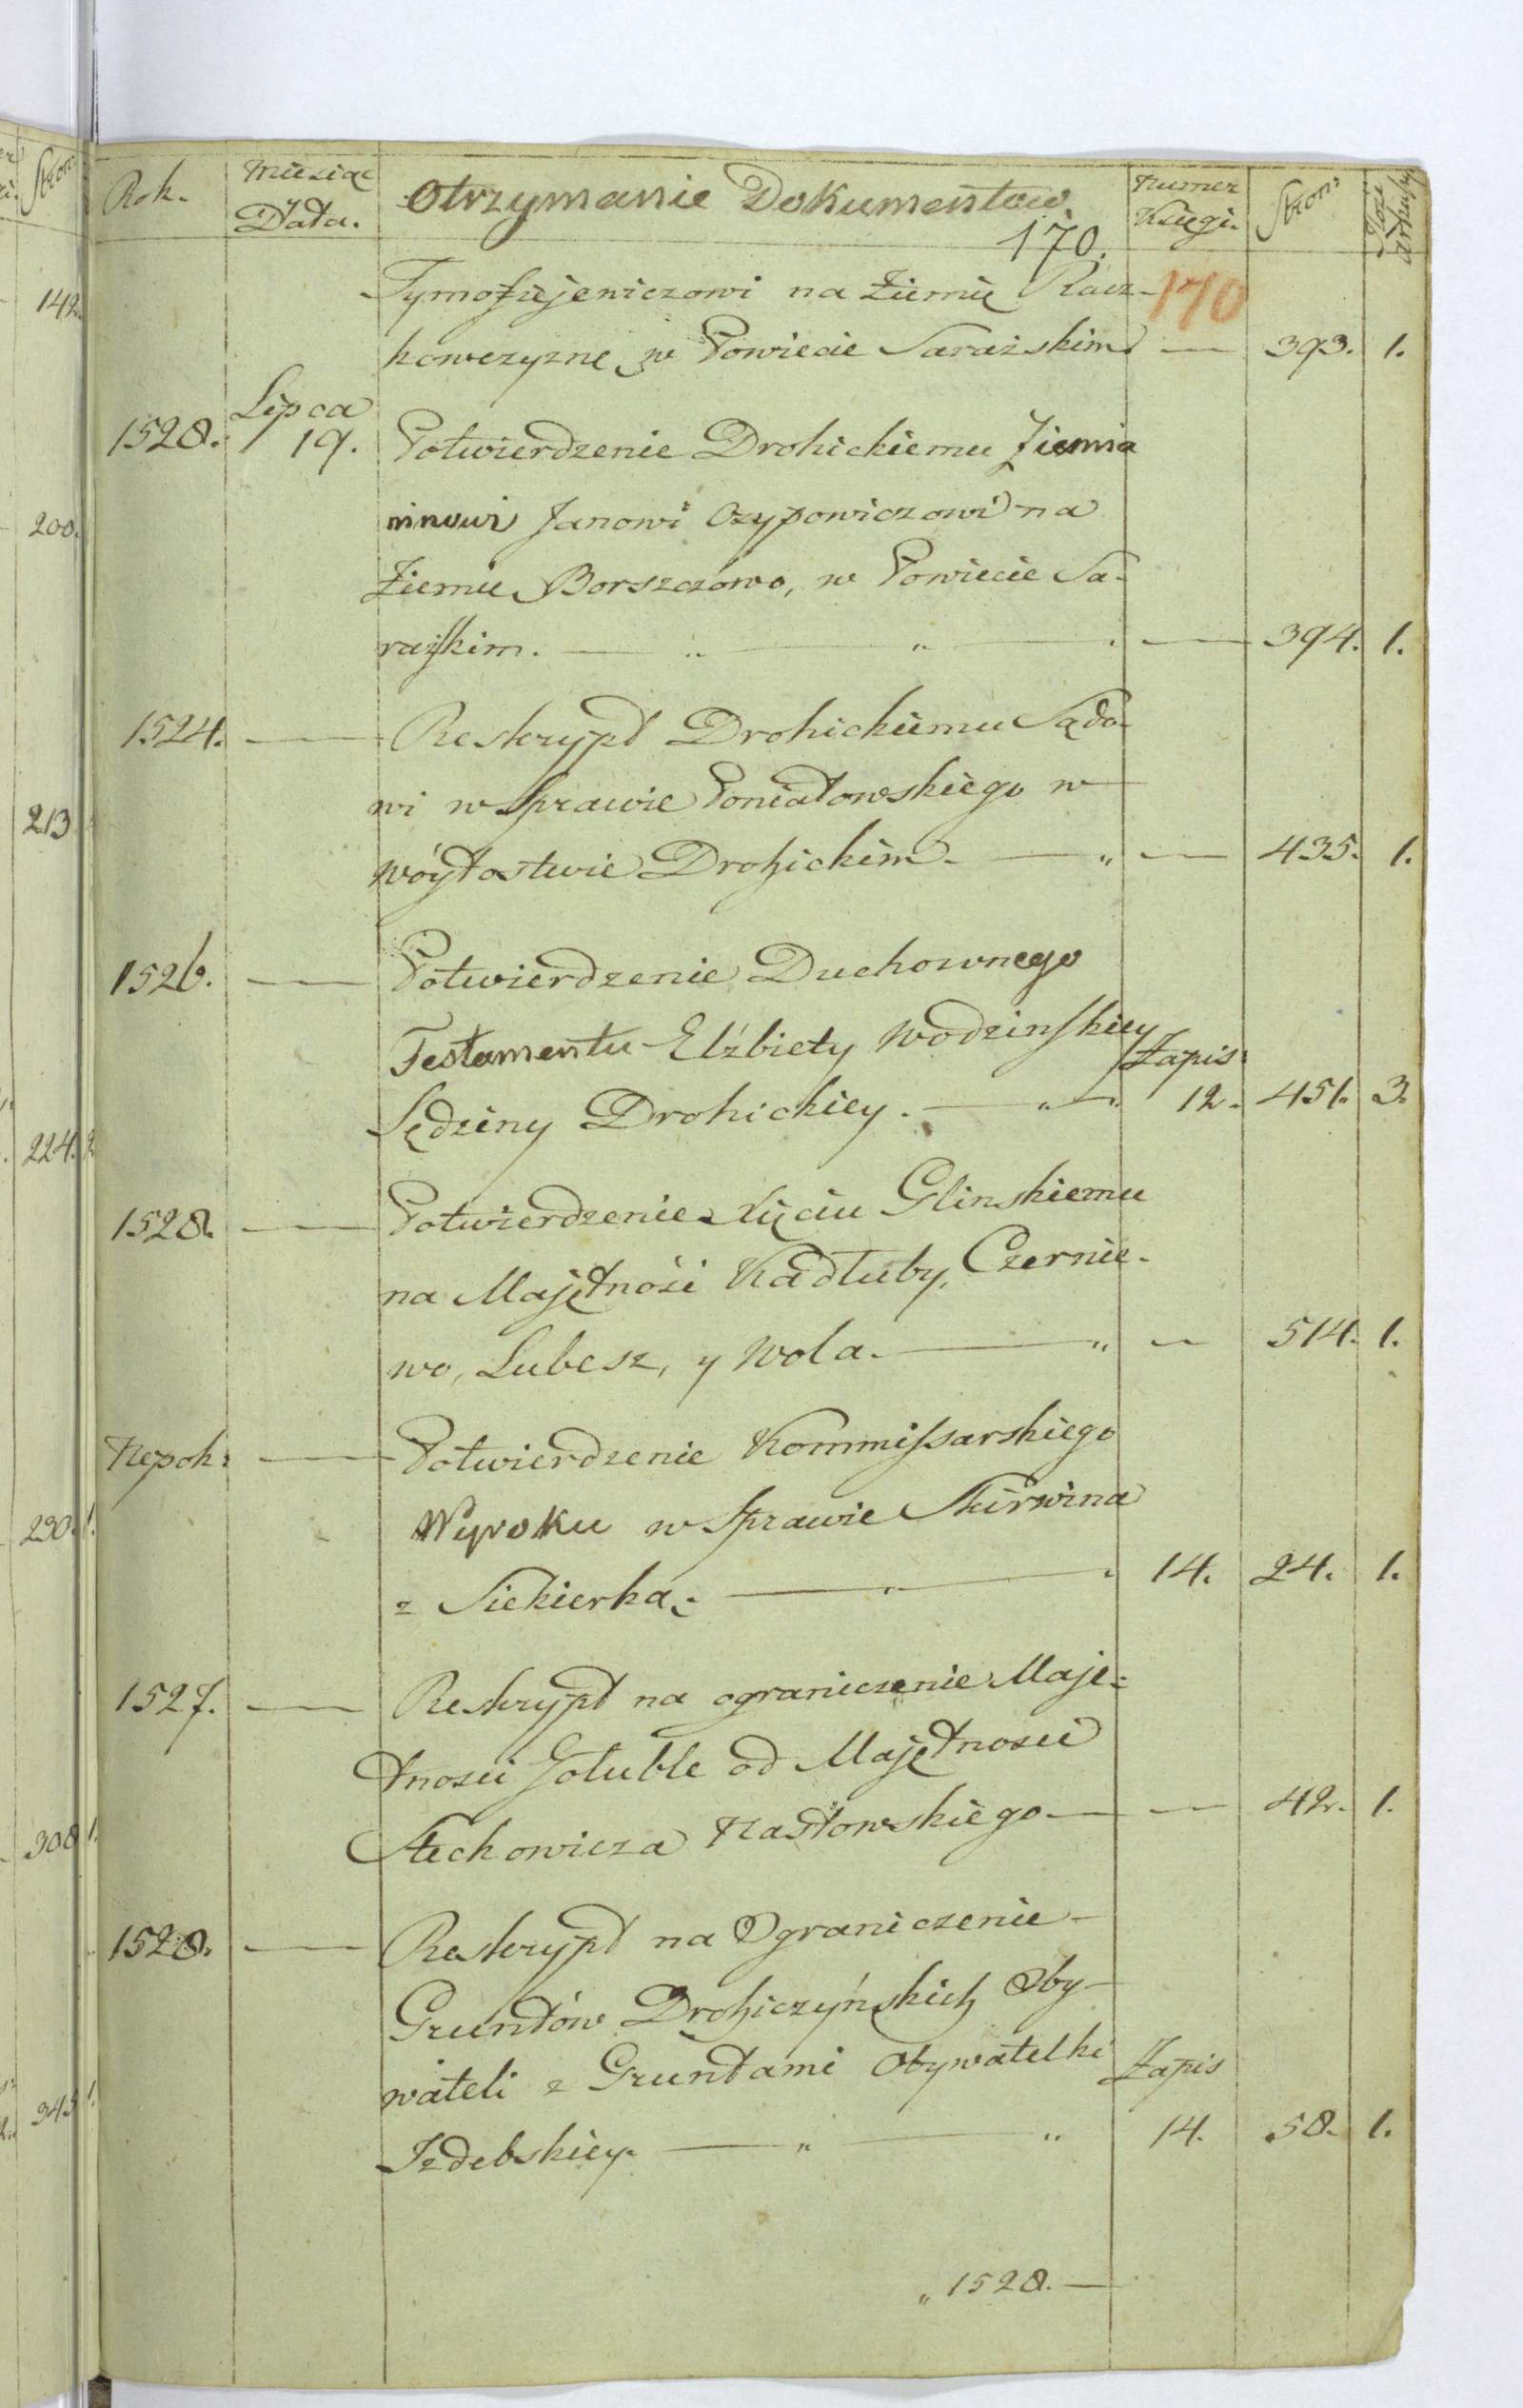 Rok. Miesiąc Otrzymanie Dokumentow. Numer Stron:
Data. Księgi.
170.
170
Tymofiejewiczowi na Ziemię Racz-
kowczyznę, w Powiecie Sarażskim — 393. 1.
Lipca
1528. 19. Potwierdzenie Drohickiemu Ziemia
ninowi Janowi Ozypowiczowi na
Ziemię Borszczowo, w Powiecie Sa-
rażskim. — 394. 1.
1524. — Reskrypt Drohickiemu Sądo-
wi w Sprawie Poniatowskiego w
Wóytostwie Drohickim. — 435. 1.
1526. — Potwierdzenie Duchownego
Testamentu Elżbiety Wodzinskiey Zapis:
Sędziny Drohickiey. — 12. 451. 3.
1528. — Potwierdzenie Xięciu Glinskiemu
na Majętności Kadłuby, Czernie-
wo, Lubesz, y Wola. — 514. 1.
Niepok: — Potwierdzenie Kommissarskiego
Wyroku w Sprawie Skirwina
z Siekierką. — 14. 24. 1.
1527. — Reskrypt na ograniczenie Maję-
tnosci Hołuble od Majętnosci
Stechowicza Nasłowskiego — 42. 1.
1528. — Reskrypt na Ograniczenie
Gruntów Drohiczyńskich Oby-
wateli z Gruntami Obywatelki Zapis
Izdebskiey. — 14. 58. 1.
„ 1528. —
142.
200.
213
224. 2
290. 1.
308 1.
345 1.